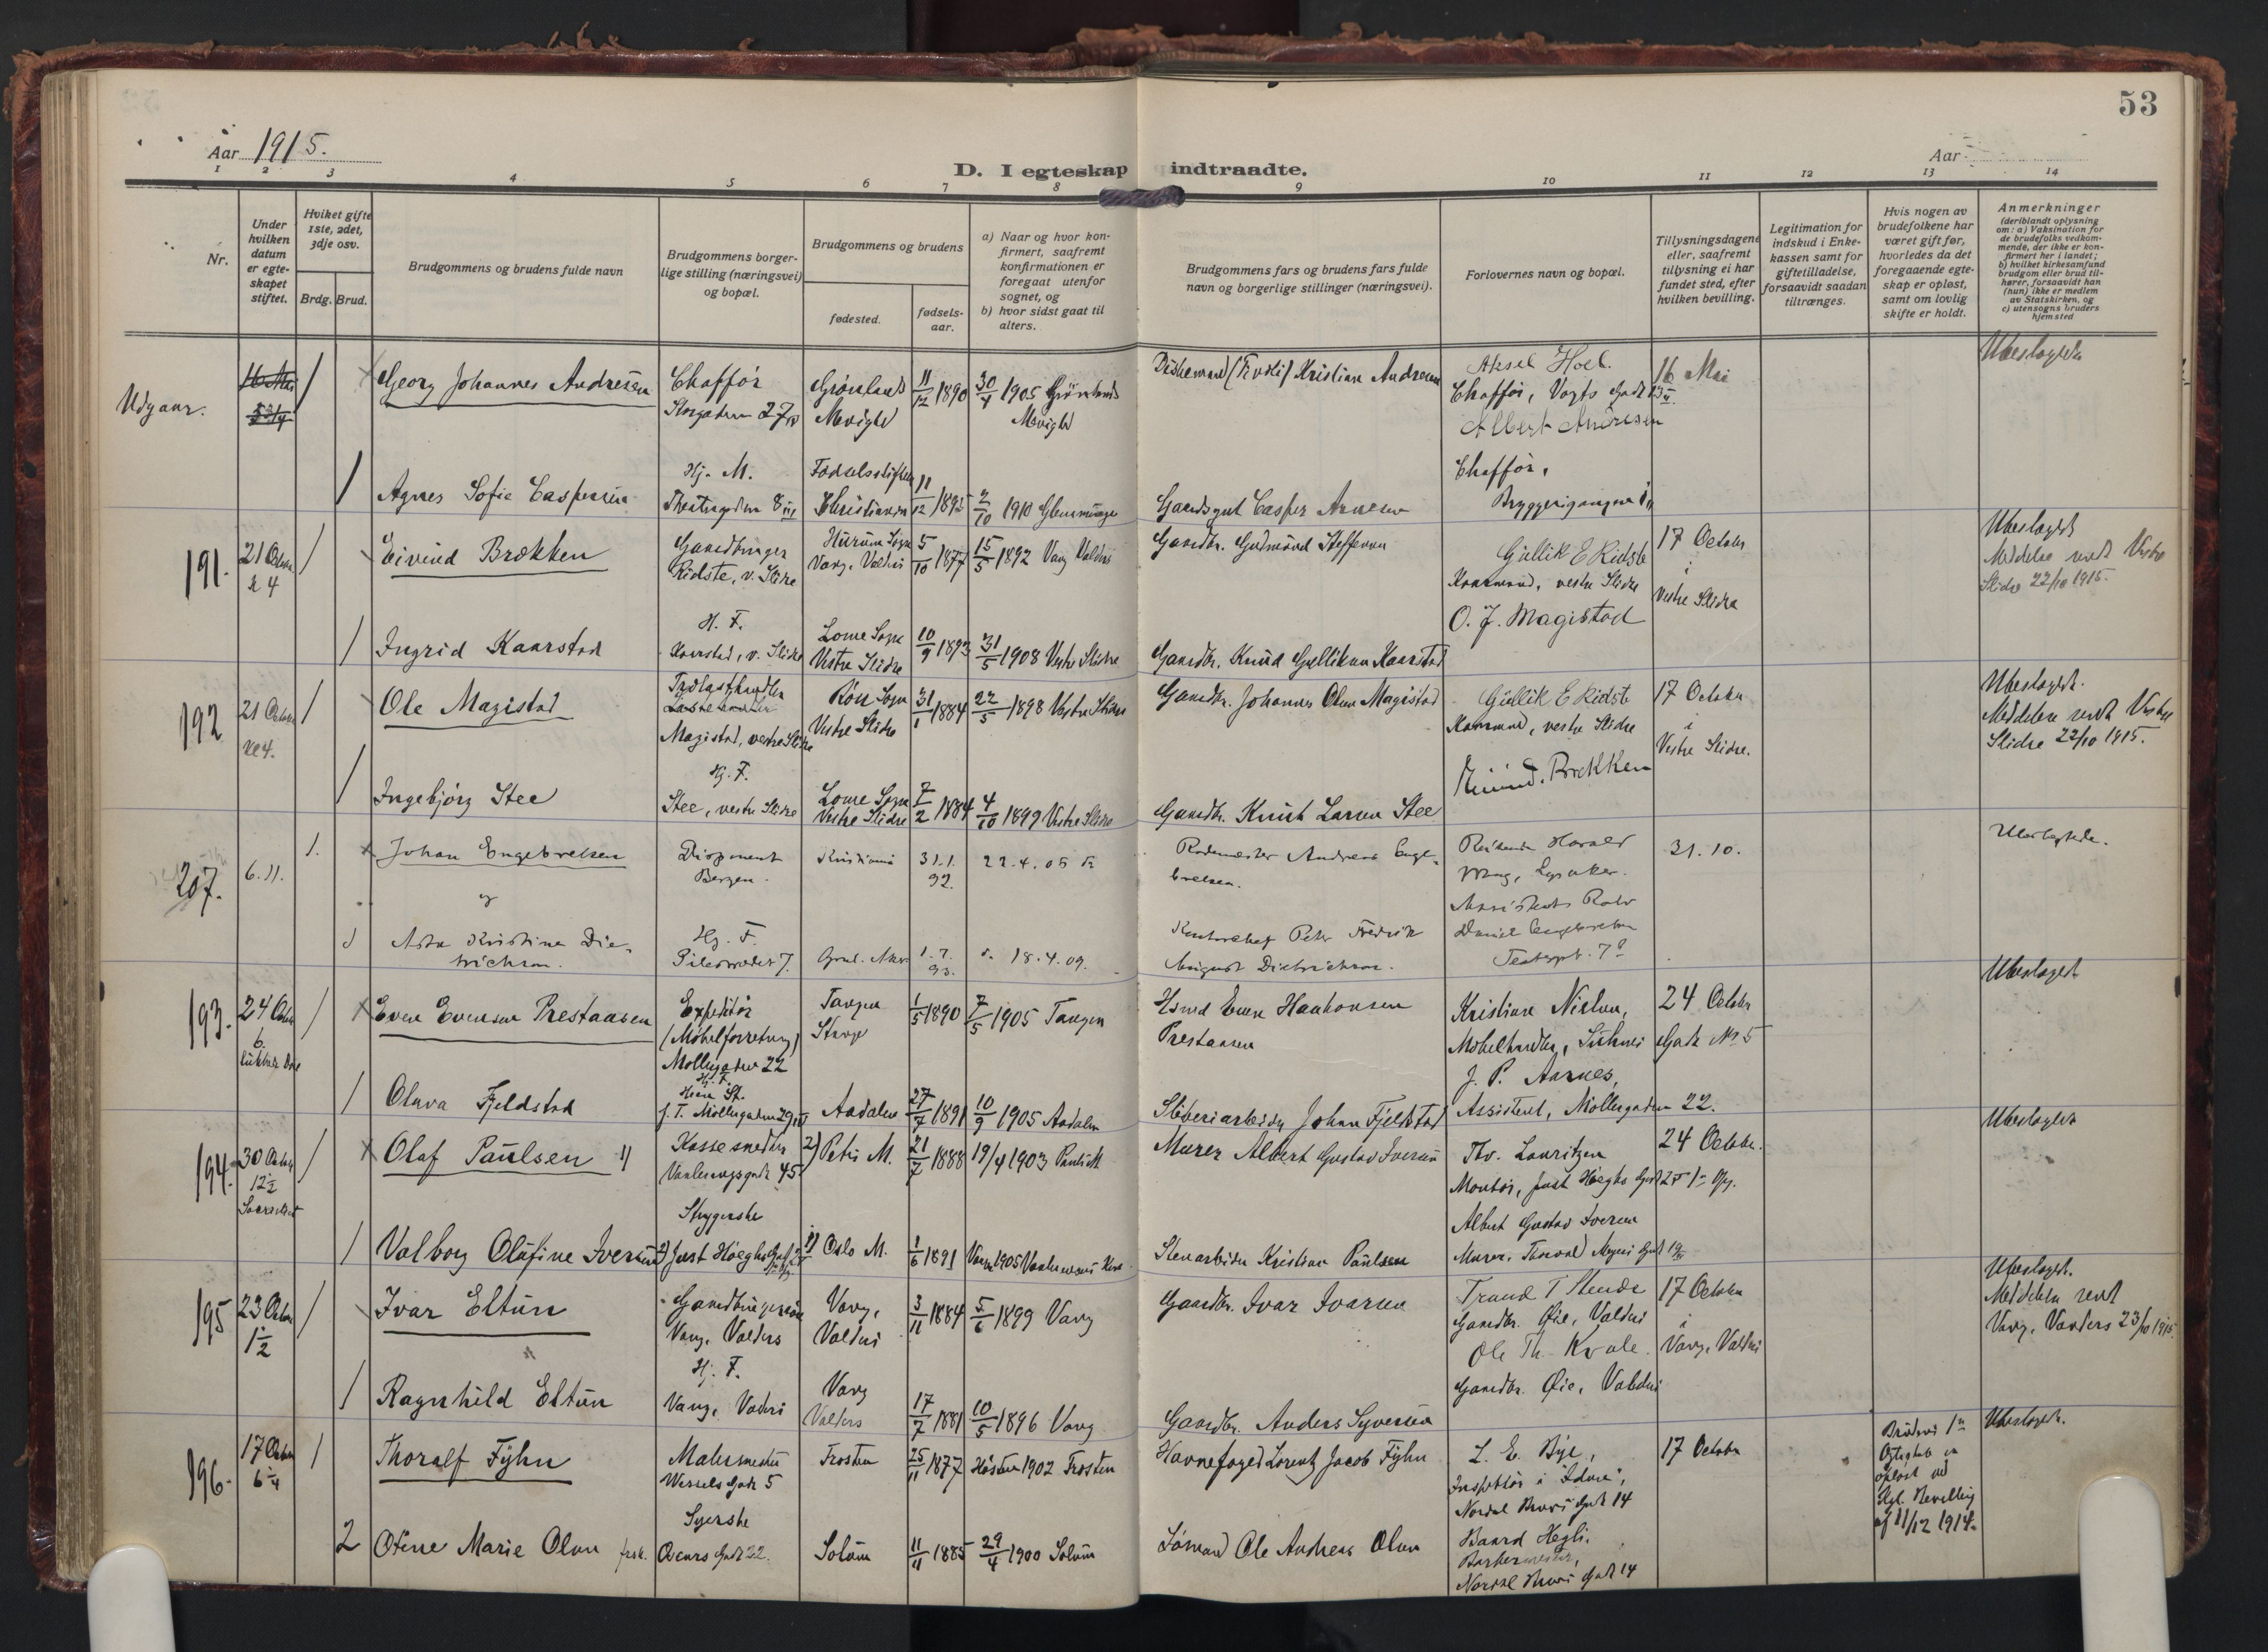 53
Aar 1915.
Aar
D. I egteskap indtraadte.
1 2 3 4 5 6 7 8 9 10 11 12 13 14
Nr.
Under hvilken datum er egteskapet stiftet.
Hvilket gifte 1ste, 2det, 3dje osv.
Brdg. Brud.
Brudgommens og brudens fulde navn
Brudgommens borgerlige stilling (næringsvei) og bopæl.
Brudgommens og brudens
fødested.
fødsels-aar.
a) Naar og hvor konfirmert, saafremt konfirmationen er foregaat utenfor sognet, og
b) hvor sidst gaat til alters.
Brudgommens fars og brudens fars fulde navn og borgerlige stillinger (næringsvei).
Forlovernes navn og bopæl.
Tillysningsdagene eller, saafremt tillysning ei har fundet sted, efter hvilken bevilling.
Legitimation for indskud i Enkekassen samt for giftetilladelse, forsaavidt saadan tiltrænges.
Hvis nogen av brudefolkene har været gift før, hvorledes da det foregaaende egteskap er opløst, samt om lovlig skifte er holdt.
Anmerkninger (deriblandt oplysning om: a) Vaksination for de brudefolks vedkommende, der ikke er konfirmert her i landet; b) hvilket kirkesamfund brudgom eller brud tilhører, forsaavidt han (hun) ikke er medlem av Statskirken, og c) utensogns bruders hjemsted
Udgaar.
1 Georg Johannes Andresen Chaffør Storgaten 27 Grønlands Menighed 11/12 1890 30/4 1905 Grønlands Menighed
Kristian Andresen
Aksel Hoel.
Chaffør, Vogts Gade
Albert Andresen
Chaffør,
Bryggerigangen
16 Mai
1 Agnes Sofie Caspersen Hj. M. Theatergaden 8 III Fødselsstiftelsen Christiania 11/12 1892 2/10 1910
Gaardsgut Casper Arnesen
191. 21 Octbr kl 4
1 Eivind Brækken Gaardbruger Ridste, v. Slidre Hurum Sogn Vang, Valders 5/10 1877 15/5 1892 Vang Valders
Gaardbr. Gudmund Steffensen
Gullik E Ridste
Kaarmand, vestre Slidre
O. J. Magistad
17 October i Vestre Slidre
Ubeslægtet
Meddelse sendt Vestre Slidre 22/10 1915.
1 Ingrid Kaarstad H. F. Kaarstad, v. Slidre Lome Sogn Vestre Slidre 10/9 1893 31/5 1908 Vestre Slidre
Gaardbr. Knud Gulliksen Kaarstad
192 21 Octbr kl 4.
1 Ole Magistad Trælasthandler Magistad, vestre Slidre Røn Sogn Vestre Slidre 31/1 1884 22/5 1898 Vestre Slidre
Gaardbr. Johannes Olsen Magistad
Gullik E Ridste
Kaarmand, vestre Slidre
Eivind Brækken
17 October i Vestre Slidre.
Ubeslægtet.
Meddelse sendt Vestre Slidre 22/10 1915.
1 Ingebjørg Stee Hj. F. Stee, vestre Slidre Lome Sogn Vestre Slidre 7/2 1884 4/10 1899 Vestre Slidre
Gaardbr. Knut Larsen Stee
207. 6.11.
1. Johan Engebretsen Disponent Bergen. Kristiania 31.1. 92. 22.4.05
og
Rodemester Andreas Engebretsen.
Harald
Lysaker.
Assistent Rolv
Daniel Engebretsen
31.10.
Ubeslægtede.
1 Asta Kristine Dietrichson. Hj. F. Pilestrædet 7. 1.7. 93. 18.4.09.
Kontorchef Peter Fredrik
August Dietrichson.
193. 24 Octbr 6.
1 Even Evensen Prestaasen Expeditør (Møbelforretning) Møllergaden 22 Tangen Stange 1/5 1890 7/5 1905 Tangen
Hsmd Even Haakonsen
Prestaasen
Kristian Nielsen,
Møbelhandler, Gade No 5
J. P. Aarnes,
Assistent, Møllergaden 22.
24 October
Ubeslægtet
1 Olava Fjeldstad Hj. F. Møllergaden 29 Aadalen 27/7 1891 10/9 1905 Aadalen
Sliberiarbeider Johan Fjeldstad
194. 30 Octbr
1 Olaf Paulsen 1) Kassesnedker Vaalerengsgade 45 2) Petri M. 21/7 1888 19/4 1903
Murer Albert Gustav Iversen
Thv. Lauritzen
Montør, Just Høeghs Gade
Albert Gustav Iversen
Murer, Thorvald Meyers Gade
24 Octobr.
Ubeslægtet
1 Valborg Olufine Iversen 2) Strygerske Just Høeghs Gade 1) Oslo M. 1/6 1891 1905 Vaalerengens Kirke
Stenarbeider Kristian Paulsen
195 23 Octbr 1 1/2
1 Ivar Eltun Gaardbrugersøn Vang, Valders Vang, Valders 3/11 1884 5/6 1899 Vang
Gaardbr. Ivar Ivarsen
Trond T Stende
Gaardbr. Øie, Valders
Ole Th. Kvale.
Gaardbr. Øie, Valders
17 October i Vang, Valders
Ubeslægtet.
Meddelse sendt Vang, Valders 23/10 1915.
1 Ragnhild Eltun Hj. F. Vang, Valders Vang Valders 17/7 1881 10/5 1896 Vang
Gaardbr. Anders Syversen
196. 17 Octbr 6 1/4
1 Thoralf Fyhn Malermester Wessels Gade 5 Frosten 25/11 1877 Høsten 1902 Frosten
Havnefoged Lorentz Jacob Fyhn
L. E. Bye,
Inspektør i "Idun",
Nordal Bruns Gade 14
Baard Hegli,
Barbermester,
Nordal Bruns Gade 14
17 October
Brudens 1ste Egteskab er opløst ved Kgl. Bevilling af 11/12 1914.
Ubeslægtet.
2 Otine Marie Olsen frsk. Syerske Oscars Gade 22. Solum 11/11 1885 29/4 1900 Solum
Sømand Ole Andreas Olsen